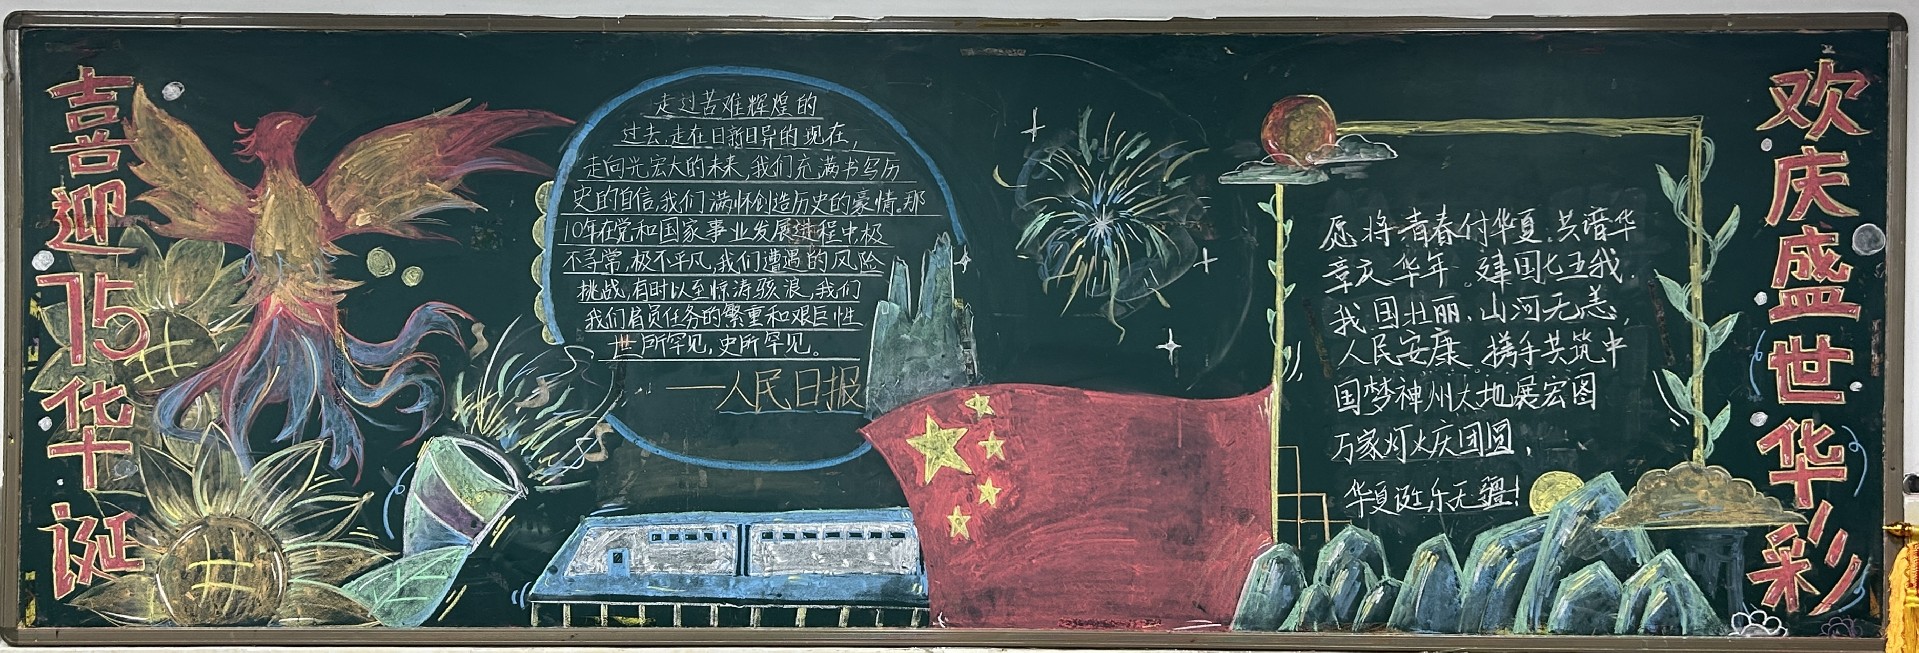 喜迎75华诞
走过苦难辉煌的
过去,走在日新日异的现在,
走向光宏大的未来,我们充满书写历
史的自信,我们满怀创造历史的豪情。那
10年在党和国家事业发展进程中极
不寻常,极不平凡,我们遭遇的风险
挑战,有时以至惊涛骇浪,我们
我们肩负任务的繁重和艰巨性
世所罕见,史所罕见。
——人民日报
愿将青春付华夏,共谱华
章庆华年。建国七五我
我国壮丽,山河无恙,
人民安康 携手共筑中
国梦神州大地展宏图
万家灯火庆团圆,
华夏诞生乐无疆!
欢庆盛世华彩